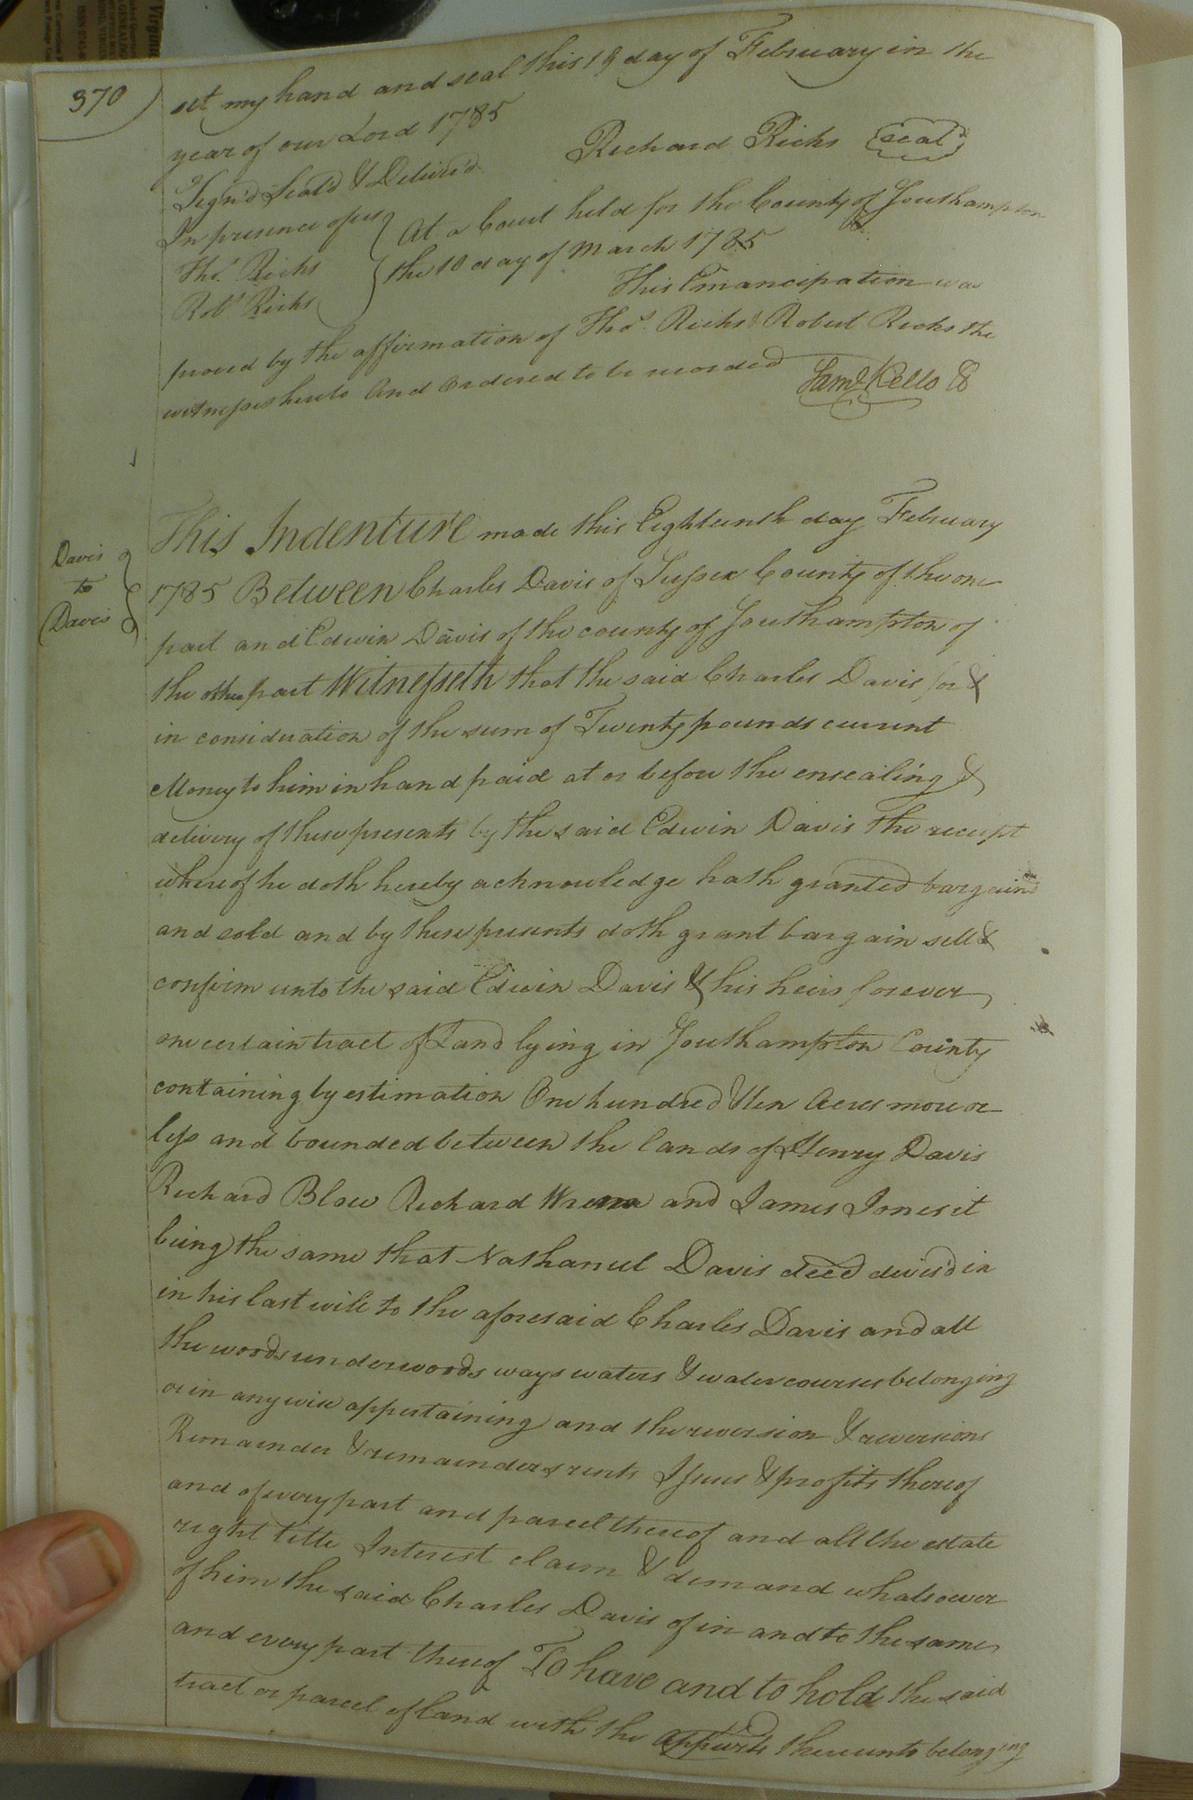 370
set my hand and seal this 18 day of February in the
year of our Lord 1785
Richard Ricks seal
Sign'd Seal'd & Deliver'd
In presence of us
Thos. Ricks
Robt Ricks
At a Court held for the County of Southampton
the 10 day of March 1785
This Emancipation was
proved by the affirmation of Thos. Ricks & Robert Ricks the
witnesses hereto and ordered to be recorded
Saml Kello
Davis
to
Davis
This Indenture made this Eighteenth day February
1785 Between Charles Davis of Sussex County of the one
part and Edwin Davis of the county of Southampton of
the other part Witnesseth that the said Charles Davis for &
in consideration of the sum of Twenty pounds current
Money to him in hand paid at or before the ensealing &
delivery of these presents by the said Edwin Davis the receipt
whereof he doth hereby acknowledge hath granted bargaind
and sold and by these presents doth grant bargain sell &
confirm unto the said Edwin Davis & his heirs forever
one certain tract of Land lying in Southampton County
containing by estimation One hundred & ten Acres more or
less and bounded between the lands of Henry Davis
Richard Blow Richard and James Jones it
being the same that Nathaniel Davis decd devis'd in
in his last will to the aforesaid Charles Davis and all
the woods underwoods ways waters & watercourses belonging
or in any wise appertaining and the reversion & reversions
Remainder & remainders rents Issues & profits thereof
and of every part and parcel thereof and all the estate
right title Interest claim & demand whatsoever
of him the said Charles Davis of in and to the same
and every part thereof To have and to hold the said
tract or parcel of land with the appurts thereunto belonging